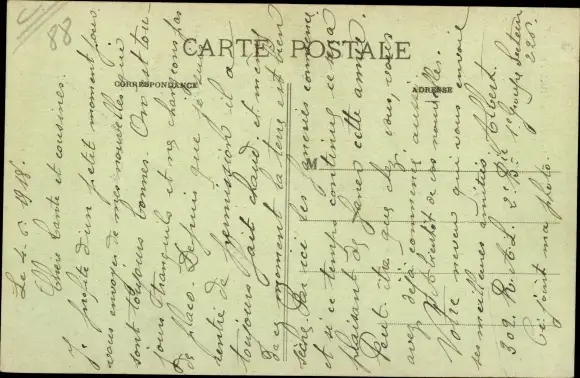 88
CARTE POSTALE
CORRESPONDANCE
ADRESSE
M
Le 4.6.1918.
Chers tante et cousines.
Je profite d'un petit moment pour
vous envoyer de mes nouvelles qui
sont toujours bonnes. On est tou-
jours tranquils et ne changeons pas
de place. Depuis que je suis
rentré de permission il a
toujours fait chaud et même
en ce moment la terre est bien
sèche. Par ici les commence
et si ce temps continue ce sera
plaisant de faner cette année.
Peut être que chez vous, vous
avez déjà commencé aussi.
bientôt de vos nouvelles.
Votre neveu qui vous envoie
ses meilleures amitiés Albert.
302 R.A.L. 2e Bie 1er Groupe Secteur
226.
Ci joint ma photo.